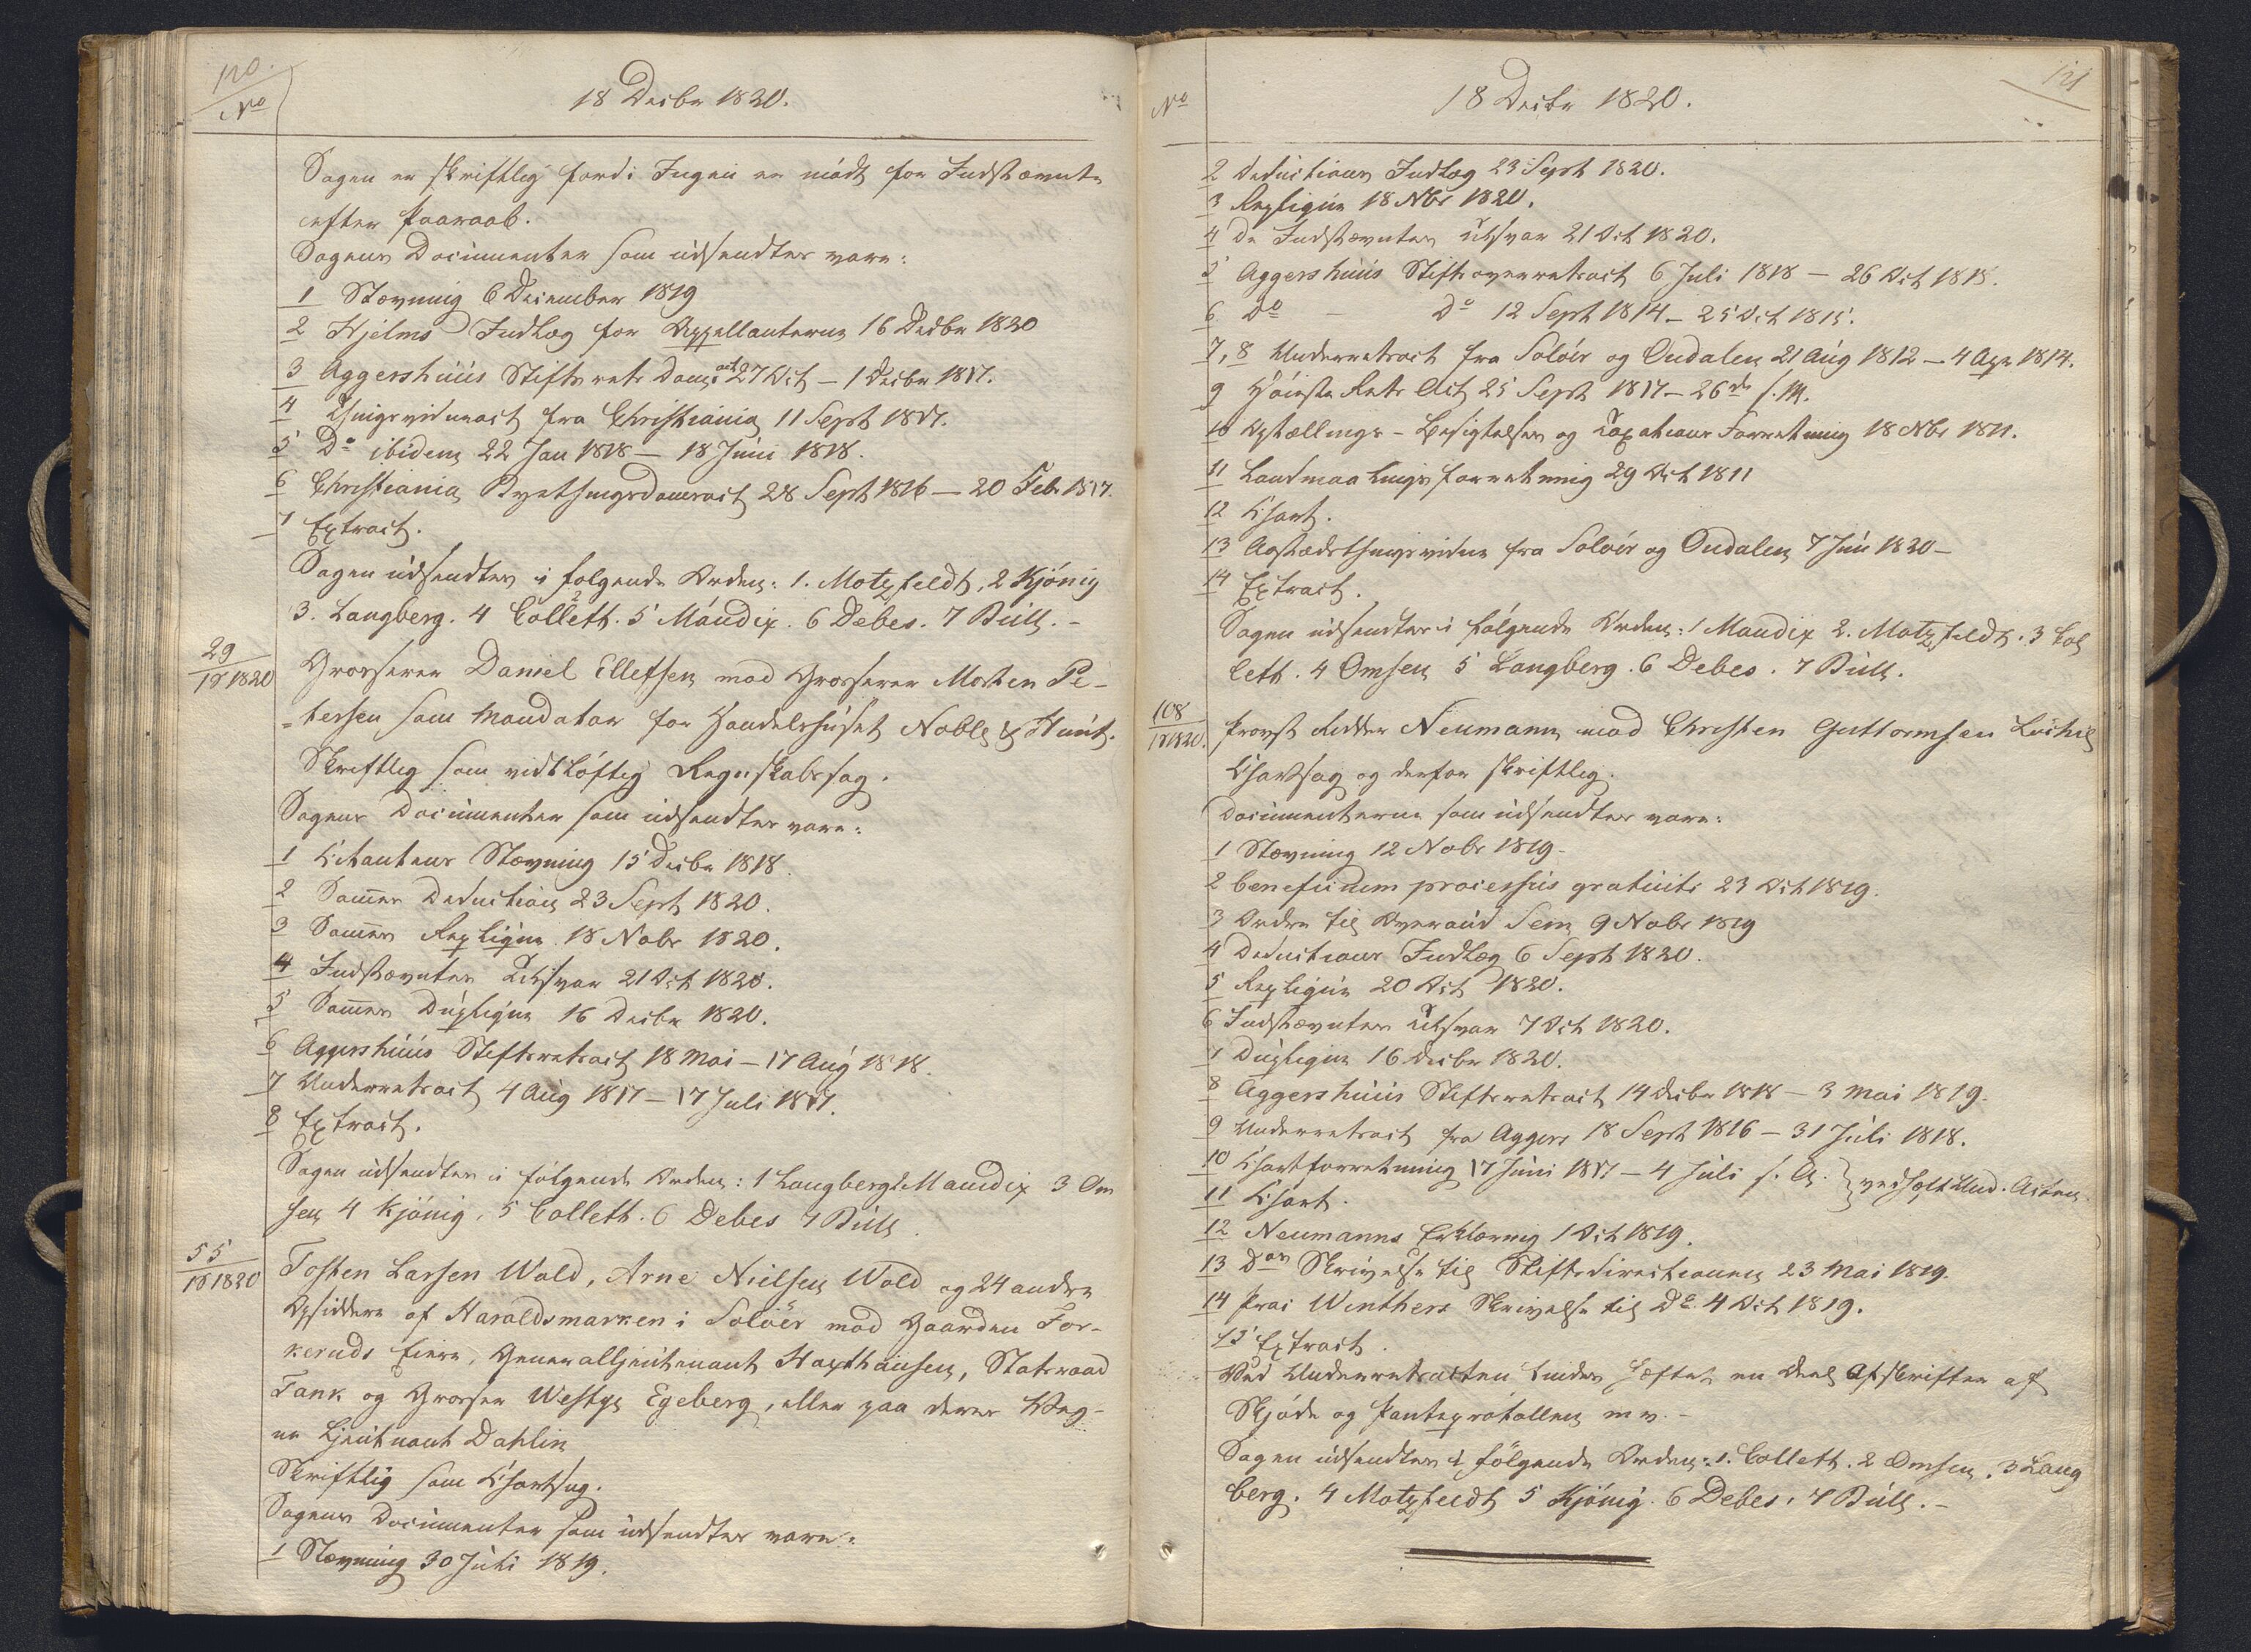 120.
No
18 Decbr 1820.
Sagen er skriftlig fordi Ingen er mödt for Indstævnte
efter Paaraab.
Sagens Documenter som udsendtes vare:
1 Stævning 6 December 1819
2 Hjelms Indlæg for Appellanterne 16 Decbr 1820
3 Aggershuus Stiftsrets Doms act 27 Oct – 1 Decbr 1817.
4 Thingsvidneact fra Christiania 11 Sept 1817.
5 Do ibidem 22 Jan 1818 – 18 Juni 1818.
6 Christiania Byethingsdomsact 28 Sept 1816 – 20 Febr 1817.
7 Extract.
Sagen udsendtes i følgende Orden: 1. Motzfeldt, 2 Kjönig
3. Langberg. 4 Collett. 5 Mandix. 6 Debes. 7 Bull. –
29/1820 Grosserer Daniel Ellefsen mod Grosserer Morten Pe-
tersen som Mandatar for Handelshuset Noble & Hunt.
Skriftlig som vidtløftig Regnskabssag.
Sagens Documenter som udsendtes vare:
1 Citantens Stævning 15 Decbr 1818.
2 Sammes Deduction 23 Sept 1820.
3 Sammes Replique 18 Novbr 1820.
4 Indstævntes Tilsvar 21 Oct 1820.
5 Sammes Duplique 16 Decbr 1820.
6 Aggershuus Stiftsretsact 18 Mai – 17 Aug 1818.
7 Underretsact 4 Aug 1817 – 17 Juli 1817.
8 Extract.
Sagen udsendtes i følgende Orden: 1 Langberg 2 Mandix 3 Om
sen 4 Kjönig. 5 Collett. 6 Debes 7 Bull.
55/1820 Tosten Larsen Wold, Arne Nielsen Wold og 24 andre
Opsiddere af Haraldsmarken i Soløer mod Gaarden For-
keruds Eiere, Generallieutenant Haxthausen, Statsraad
Tank og Grosser Westye Egeberg, eller paa deres Veg-
ne Ljeutnant Dahlin
Skriftlig som Chartsag.
Sagens Documenter som udsendtes vare:
1 Stævning 30 Juli 1819.
121
No
18 Decbr 1820.
2 Deductions Indlæg 23 Sept 1820.
3 Replique 18 Nbr 1820.
4 De Indstævntes Tilsvar 21 Oct 1820.
5 Aggershuus Stiftsoverretsact 6 Juli 1818 – 26 Oct 1818.
6 Do – Do 12 Sept 1814 – 25 Oct 1815.
7, 8 Underretsact fra Soløer og Oudalen 21 Aug 1812 – 4 Apr 1814.
9 Høieste Rets Act 25 Sept 1817 – 26de s. M.
10 Optællings – Besigtelses og Taxations Forretning 18 Nbr 1811.
11 Landmaalingsforretning 29 Oct 1811
12 Chart.
13 Aastædsthingsvidne fra Soloër og Oudalen 7 Juni 1820 –
14 Extract.
Sagen udsendtes i følgende Orden: 1 Mandix 2. Motzfeldt. 3 Col
lett. 4 Omsen 5 Langberg. 6 Debes. 7 Bull.
108/1820. Provst Ridder Neumann mod Christen Guttormsen
Chartsag og derfor skriftlig.
Documenterne som udsendtes vare:
1 Stævning 12 Novbr 1819.
2 beneficium processus gratuiti 23 Oct 1819.
3 Ordre til Overaud Sem 9 Novbr 1819
4 Deductions Indlæg 6 Sept 1820.
5 Replique 20 Oct 1820.
6 Indstævntes Tilsvar 7 Oct 1820.
7 Duplique 16 Decbr 1820.
8 Aggershuus Stiftsretsact 14 Decbr 1818 – 3 Mai 1819.
9 Underretsact fra Aggers 18 Sept 1816 – 31 Juli 1818.
10 Chartforretning 17 Juni 1817 – 4 Juli s. A. } vedhæft Und. Acten.
11 Chart.
12 Neumanns Erklæring 1 Oct 1819.
13 Dos Skrivelse til Stiftsdirectionen 23 Mai 1819.
14 Winthers Skrivelse til Do 4 Oct 1819.
15 Extract.
Ved Underretsacten findes hæftet en Deel Afskrifter af
Skjøde og Panteprotocollen m v. –
Sagen udsendtes i følgende Orden: 1. Collett. 2 Omsen. 3 Lang
berg. 4 Motzfeldt 5 Kjönig. 6 Debes. 7 Bull. –